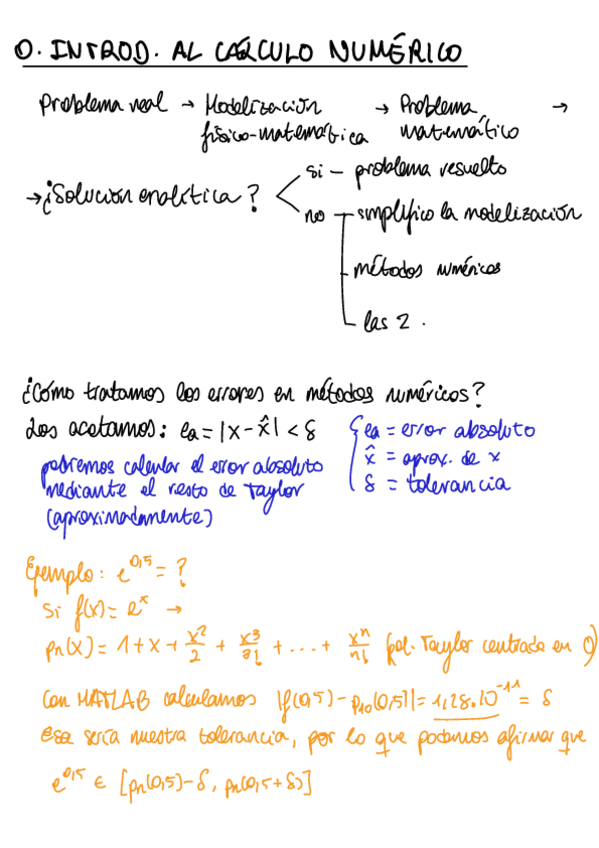 0. INTROD. AL CÁRCULO NUMÉRICO
Problema real → Modelización físico-matemática → Problema matemático →
→ ¿Solución analítica? < si – problema resuelto
no – simplifico la modelización
métodos numéricos
las 2.
¿Cómo tratamos los errores en métodos numéricos?
Los acotamos: ea = |x - x̂| < δ
{ ea = error absoluto
x̂ = aprox. de x
δ = tolerancia
podremos calcular el error absoluto
mediante el resto de Taylor
(aproximadamente)
Ejemplo: e^0,5 = ?
Si f(x) = e^x →
pn(x) = 1 + x + x²/2 + x³/3! + ... + xⁿ/n! (pol. Taylor centrado en 0)
Con MATLAB calculamos |f(0,5) - p10(0,5)| = 1,28·10^-11 = δ
Esa sería nuestra tolerancia, por lo que podemos afirmar que
e^0,5 ∈ [pn(0,5) - δ, pn(0,5 + δ)]